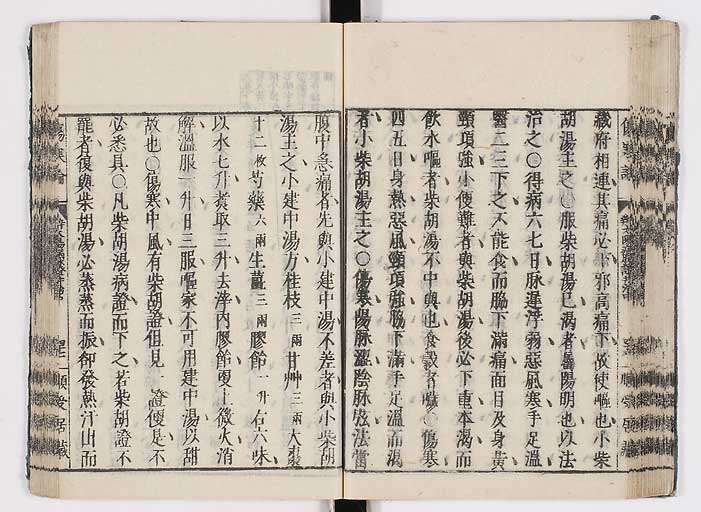 藏府相連其痛必下邪高痛下故使嘔也小柴
胡湯主之○服柴胡湯已渴者屬陽明也以法
治之○得病六七日脉遲浮弱惡風寒手足溫
醫二三下之不能食而脇下滿痛面目及身黃
頸項強小便難者與柴胡湯後必下重本渴而
飲水嘔者柴胡湯不中與也食穀者噦○傷寒
四五日身熱惡風頸項強脇下滿手足溫而渴
者小柴胡湯主之○傷寒陽脉澀陰脉弦法當
腹中急痛者先與小建中湯不差者與小柴胡
湯主之小建中湯方桂枝三兩甘艸三兩大棗
十二枚芍藥六兩生薑三兩膠飴一升右六味
以水七升煑取三升去滓內膠飴更上微火消
解溫服一升日三服嘔家不可用建中湯以甜
故也○傷寒中風有柴胡證但見一證便是不
必悉具○凡柴胡湯病證而下之若柴胡證不
罷者復與柴胡湯必蒸蒸而振卻發熱汗出而